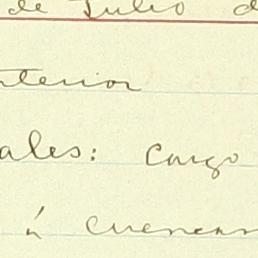 de Julio d
nterior
ales: Cargo
á cuencan